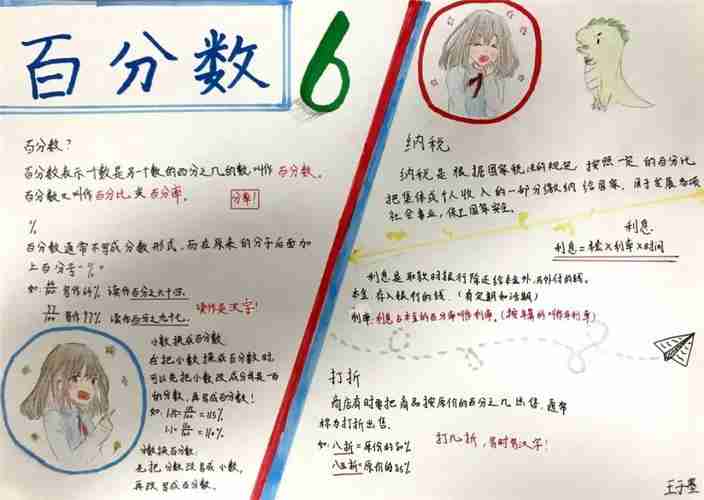 百分数 6
百分数？
百分数表示一个数是另一个数的百分之几的数叫作百分数。
百分数也叫作百分比或百分率。
分率！
%
百分数通常不写成分数形式，而在原来的分子后面加
上百分号"%"。
如: 64/100 写作64% 读作百分之六十四。
97/100 写作97% 读作百分之九十七。
读作是汉字！
小数换成百分数
在把小数换成百分数时
可以先把小数改成分母是一百
的分数，再写成百分数！
如: 1.15= 115/100 =115%
1.1= 110/100 =110%
分数换百分数:
先把分数改写成小数，
再改写成百分数。
纳税
纳税是根据国家税法的规定 按照一定的百分比
把集体或个人收入的一部分缴纳给国家。用于发展各项
社会事业，保卫国家安全。
利息
利息=本金×利率×时间
利息是取款时银行除还给本金外，另外付的钱。
本金:存入银行的钱。(有定期和活期)
利率:利息占本金的百分率叫作利率。(按年算的叫作年利率)
打折
商店有时要把商品按原价的百分之几出售，通常
称为打折出售。
如:八折=原价的80%
八五折=原价的85%
打几折，写时写汉字！
王子墨